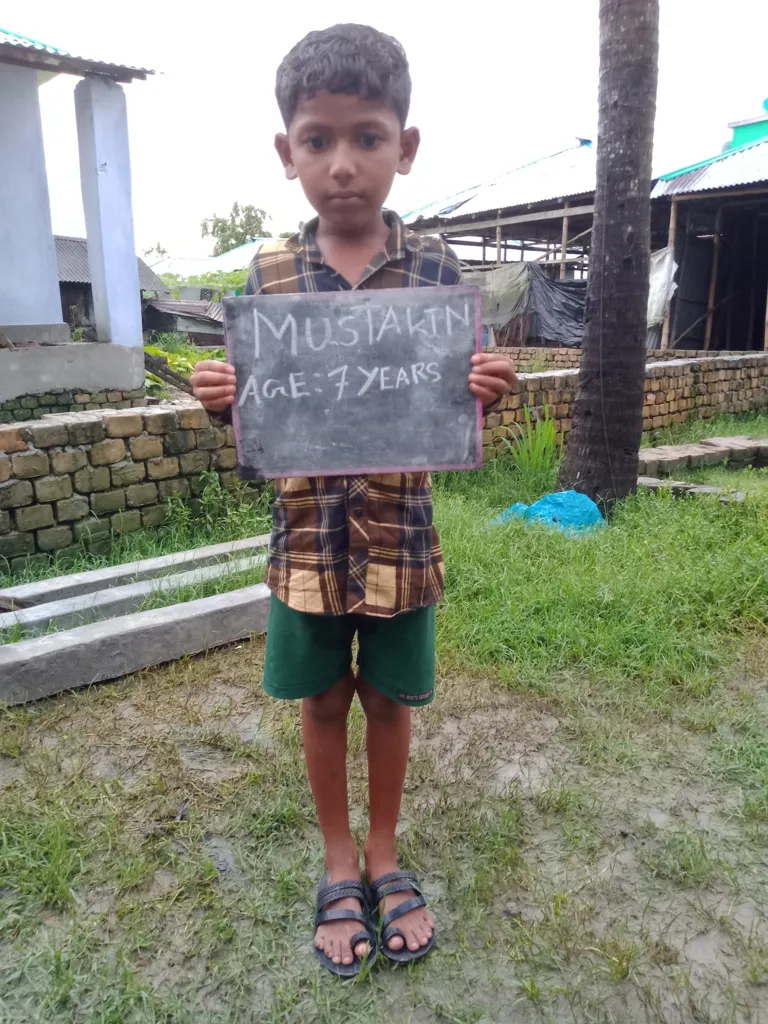 MUSTAKIN
AGE: 7 YEARS